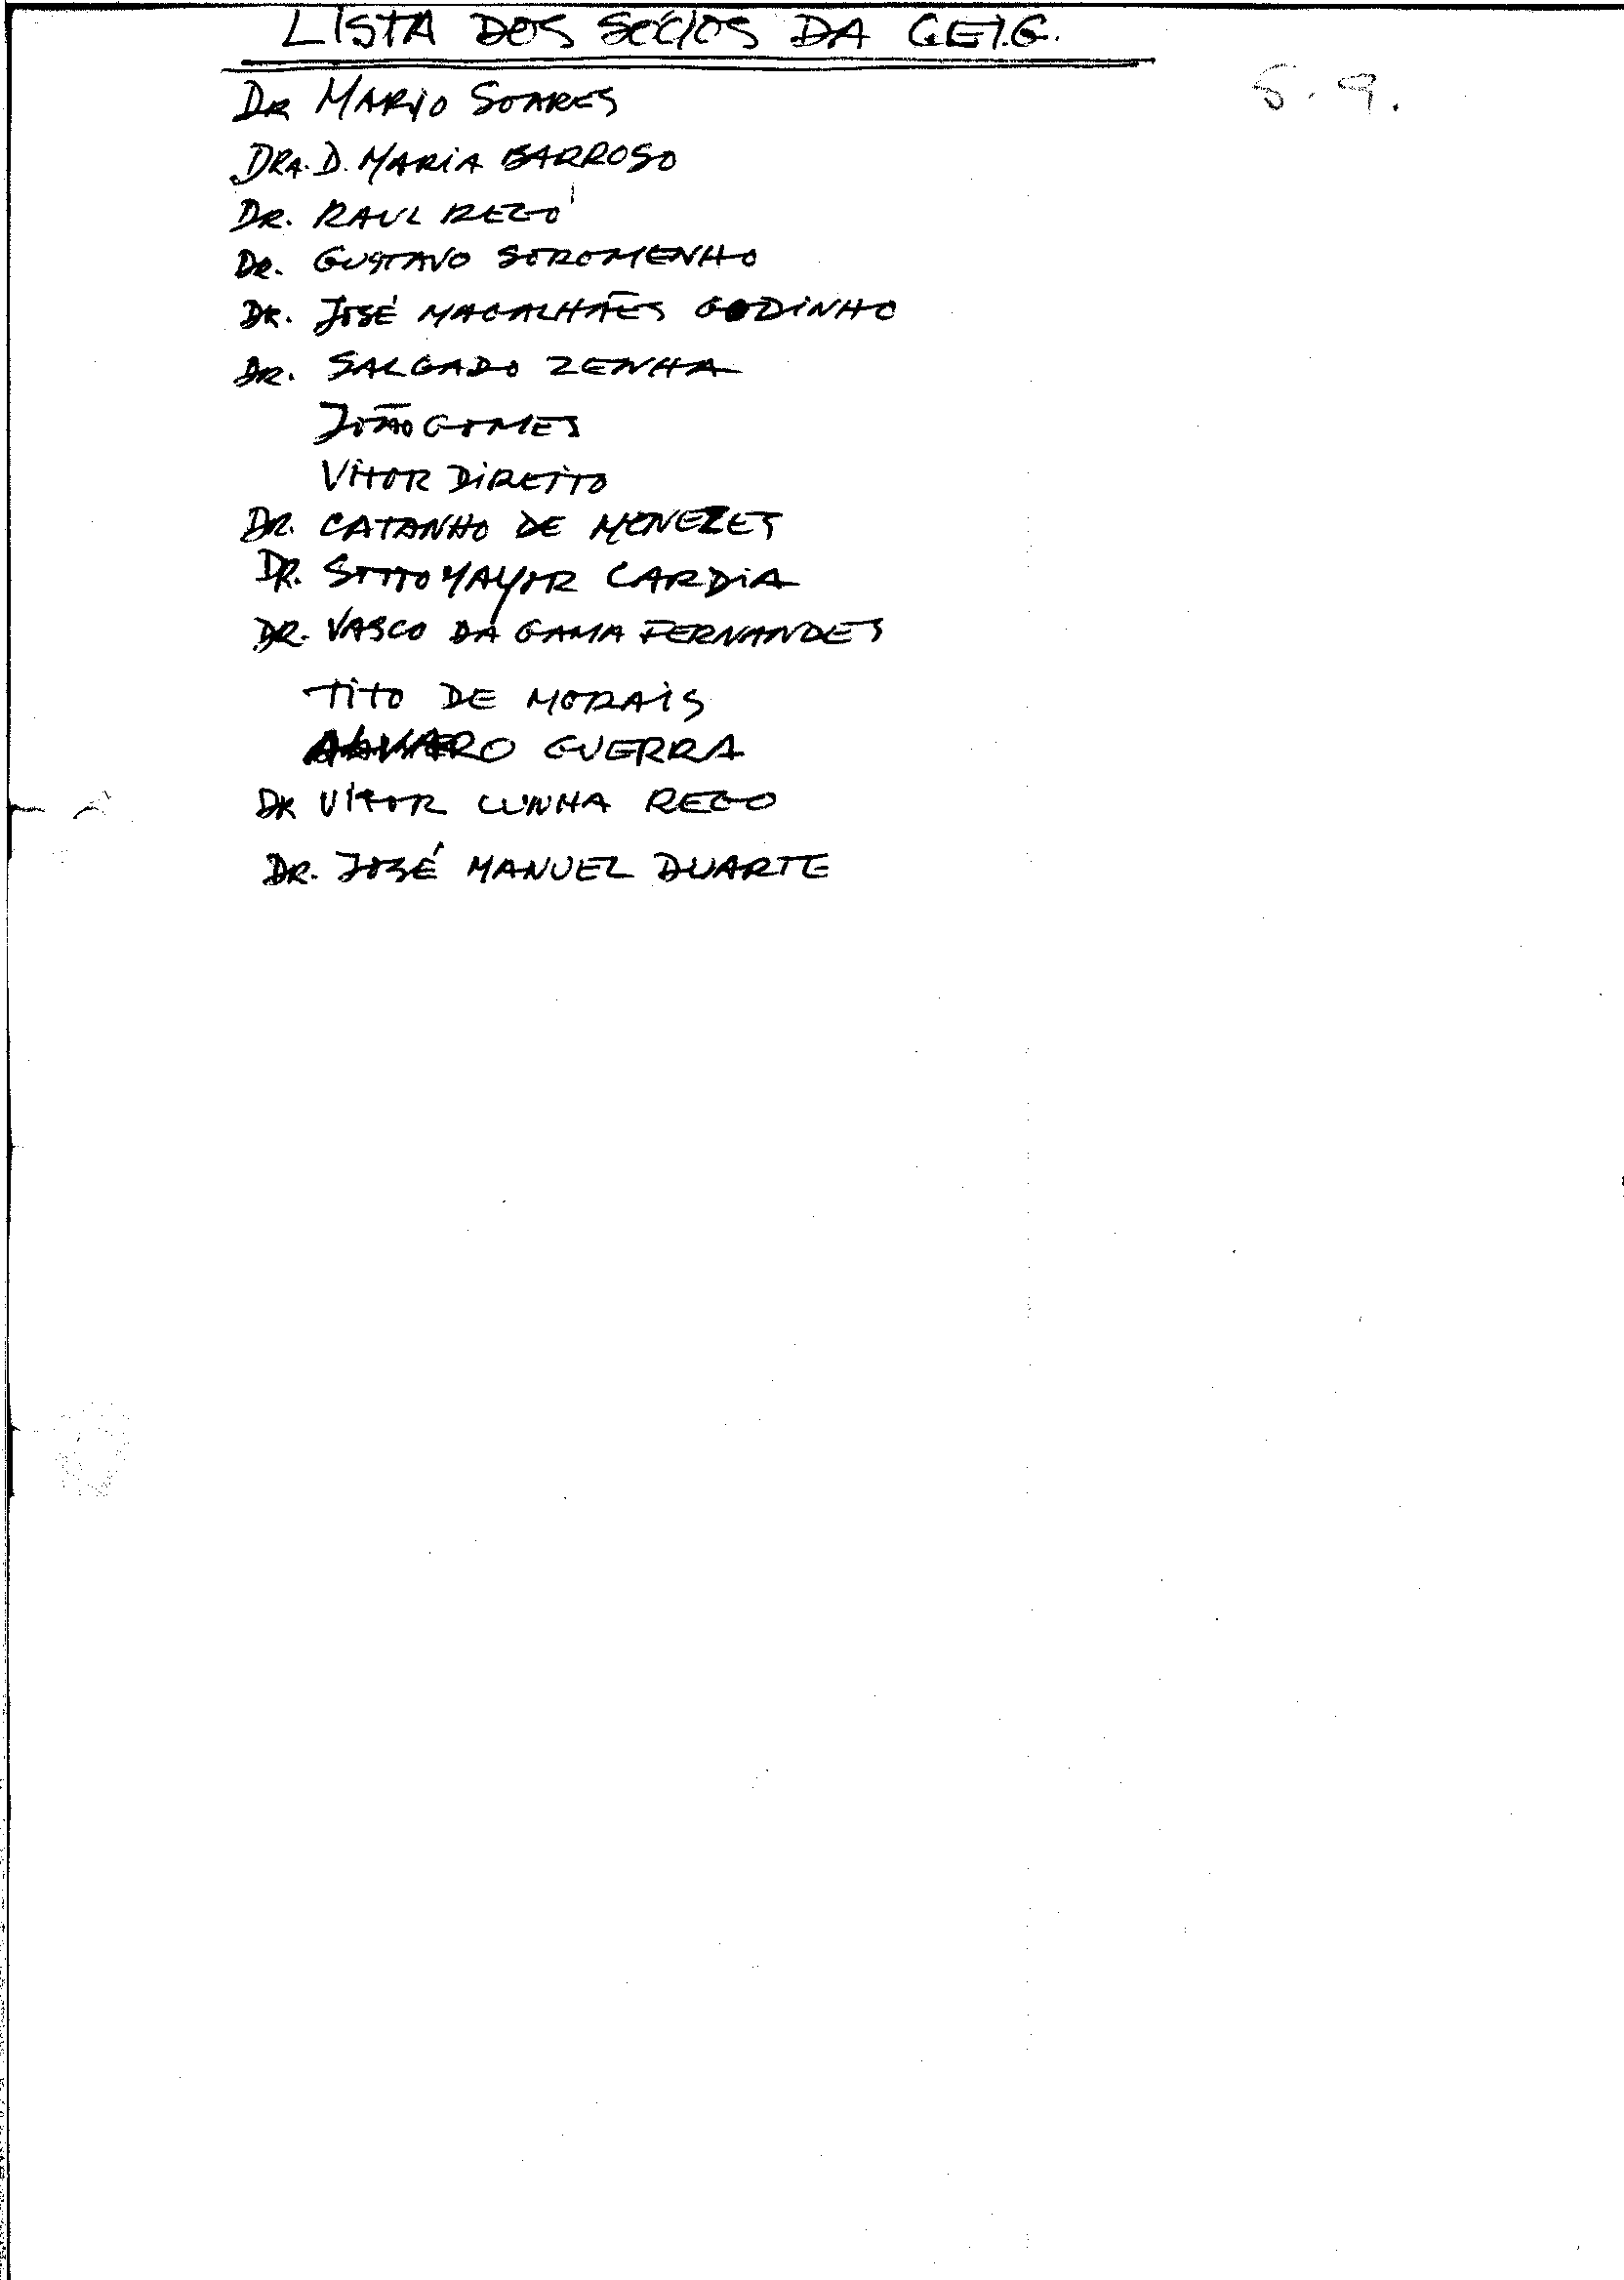 LISTA DOS SÓCIOS DA C.E.I.G.
S. 9.
DR MARIO SOARES
DRA. D. MARIA BARROSO
DR. RAUL REGO
DR. GUSTAVO SOROMENHO
DR. JOSÉ MAGALHÃES GODINHO
DR. SALGADO ZENHA
JOÃO GOMES
VITOR DIREITO
DR. CATANHO DE MENEZES
DR. SOTTO MAYOR CARDIA
DR. VASCO DA GAMA FERNANDES
TITO DE MORAIS
ALVARO GUERRA
DR VITOR CUNHA REGO
DR. JOSÉ MANUEL DUARTE